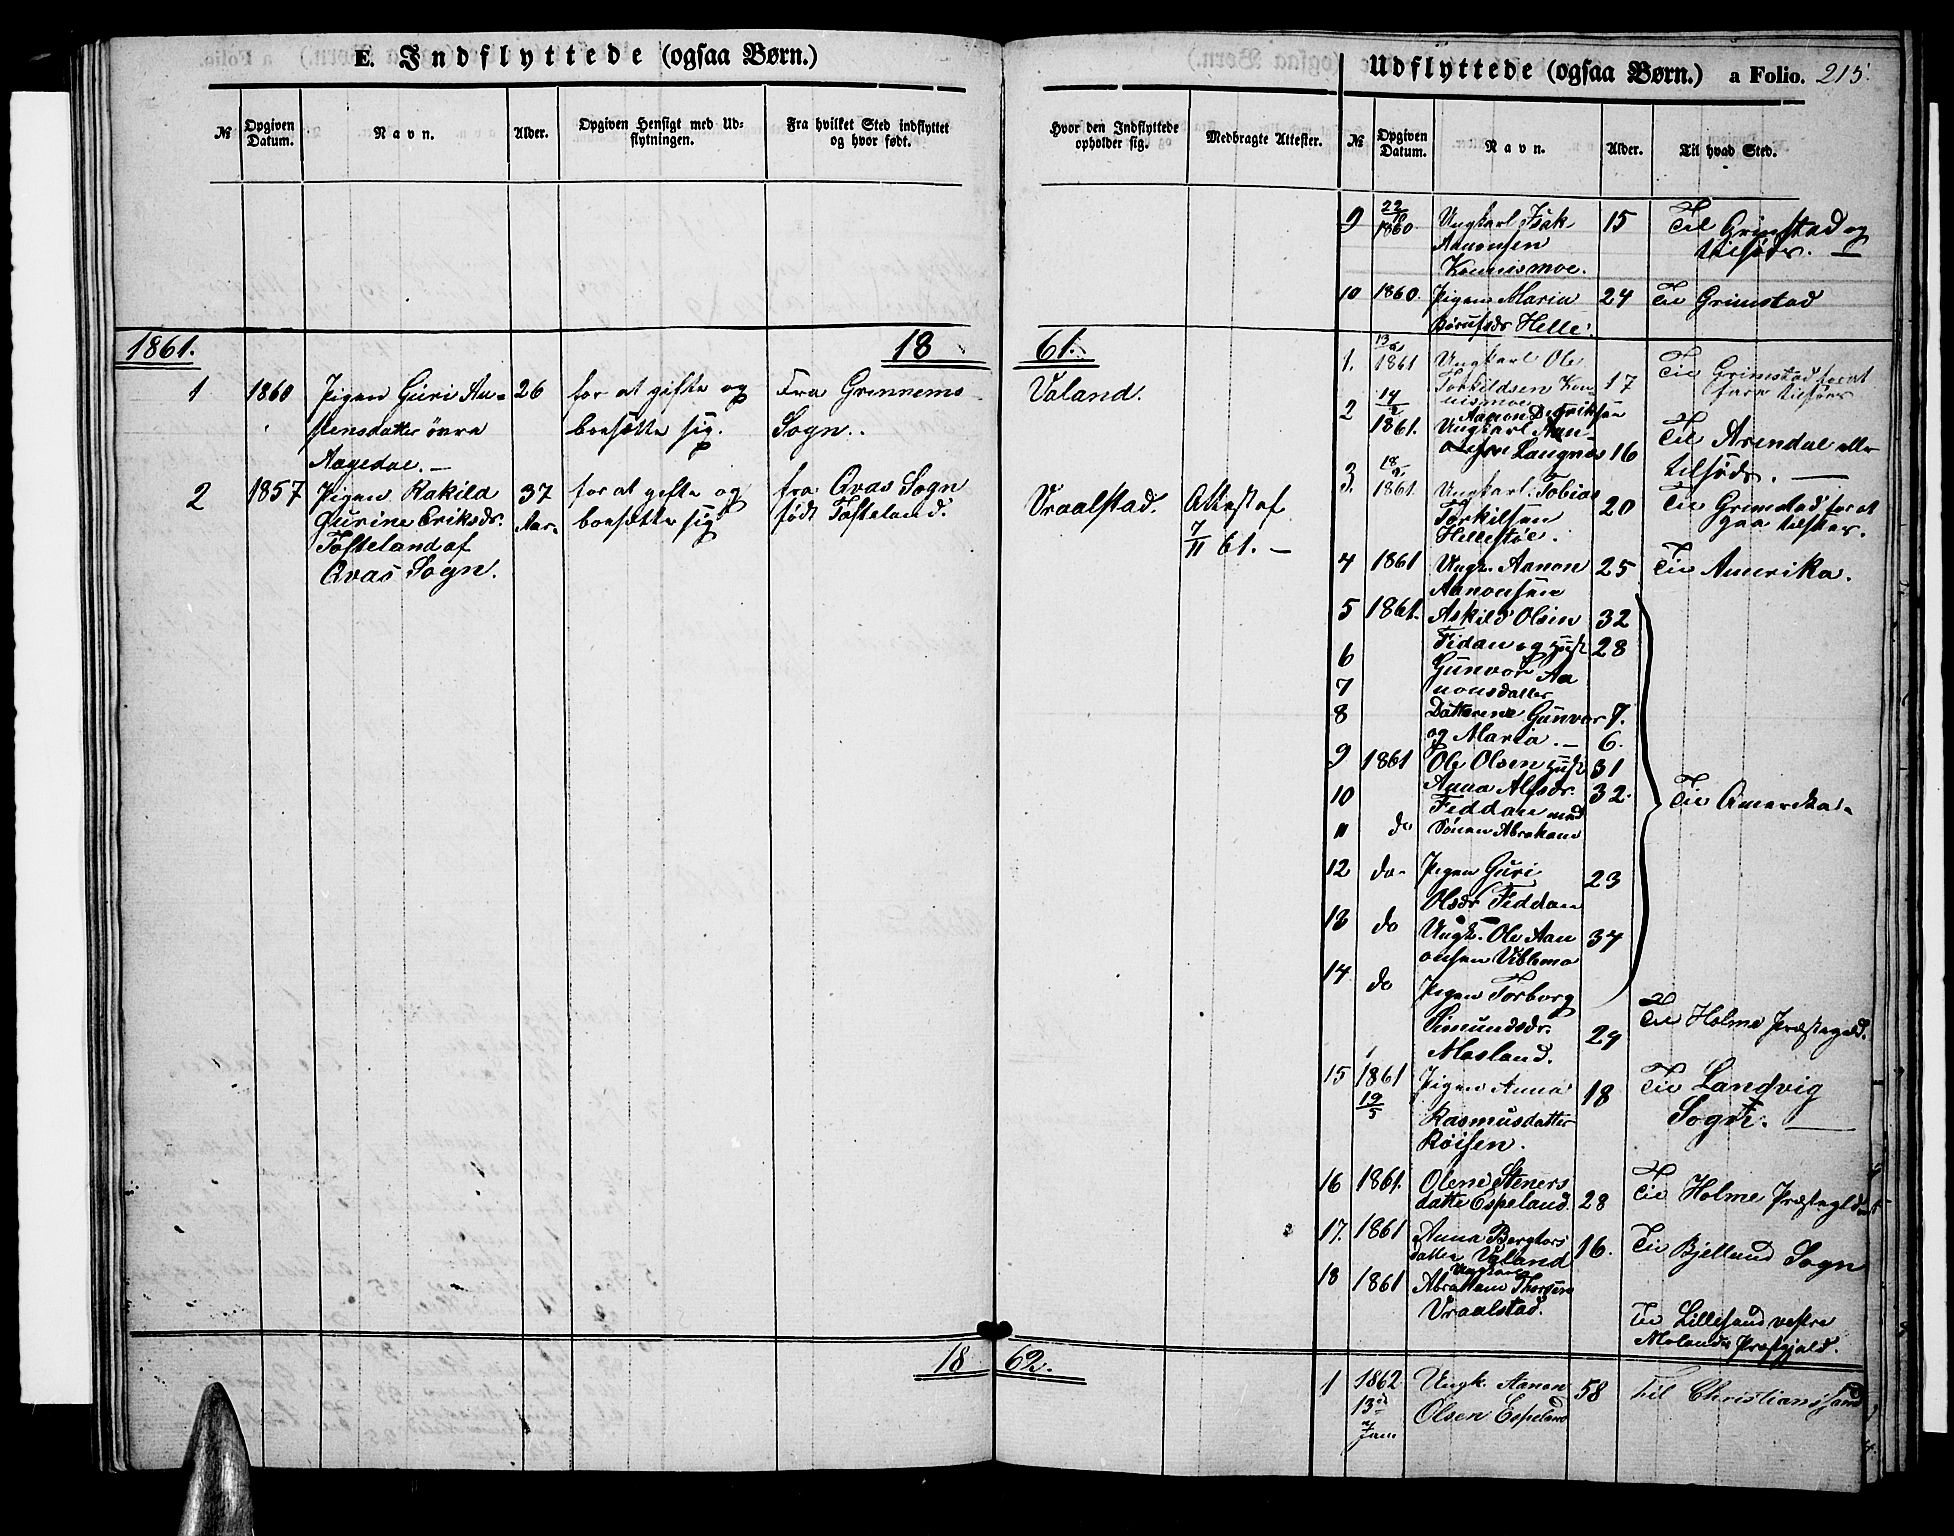 E. Indflyttede (ogsaa Børn.)
№
Opgiven Datum.
Navn.
Alder.
Opgiven Hensigt med Ud-
flytningen.
Fra hvilket Sted indflyttet
og hvor født.
1861.
18
1
1860
Pigen Guri Au-
stensdatter øvre
Aagedal. —
26
for at gifte og
bosætte sig.
Fra Grinnems
Sogn.
2
1857
Pigen Rakild
Gurine Eriksdr.
Tofteland af
Qvas Sogn.
37
Aar
for at gifte og
bosætte sig
fra Qvas Sogn
født Tofteland.
18
Hvor den Indflyttede
opholder sig.
Medbragte Attester.
61.
Valand.
Vraalstad.
Attest af
7/11 61. —
62.
Udflyttede (ogsaa Børn.) a Folio. 215.
№
Opgiven Datum.
Navn.
Alder.
Til hvad Sted.
9
1860.
Ungkarl Isak
Aanonsen
Konnismoe.
15
Til Grimstad og
tilsøds. —
10
1860.
Pigen Maria
Helle.
24
Til Grimstad
1.
1861
Ungkarl Ole
Torkildsen Kon-
nismoe
17
Til Grimstad for at
fare tilsøes
2
14/2
1861.
Aanon Dedriksen
Ungkarl
Laugnes
16
Til Arendal eller
tilsøds. —
3.
18/2
1861.
Ungkarl Tobias
Torkilsen
Hellestøe.
20
Til Grimstad for at
gaa tilsøes.
4
1861
Ungk. Aanon
Aanonsen
25
Til Amerika.
5
1861.
Askild Olsen
32
Fidan og Hust.
28
6
Gunvor Aa
7
nonsdatter
8
Døttrene Gunvor
7.
og Maria. —
6.
9
1861
Ole Olsen Hust.
31
10
Anna Alfsdr.
32.
Feddan med
11
do
Sønen Abraham
Til Amerika.
12
do
Pigen Guri
Olsdr Feddan
23
13
do
Ungk. Ole Aan
onsen Viblemo
34
14.
do
Pigen Torborg
Simundsdr.
Mosland.
29
Til Holme Præstegjeld.
15
1861
19/5
Pigen Anna
Rasmusdatter
Røisen.
18
Til Landvig
Sogn. —
16
1861.
Olene Steners
datte Espeland.
28
Til Holme
17.
1861
Anna Bergtors
datter Valand
16.
Til Bjelland Sogn
18
1861
Ungkarl
Abraham
Vraalstad.
Til Lillesand vestre
Molands Præstgjeld.
1
1862
13de
Jan
Ungk. Aanon
Olsen Espeland
58
Til Christianssand